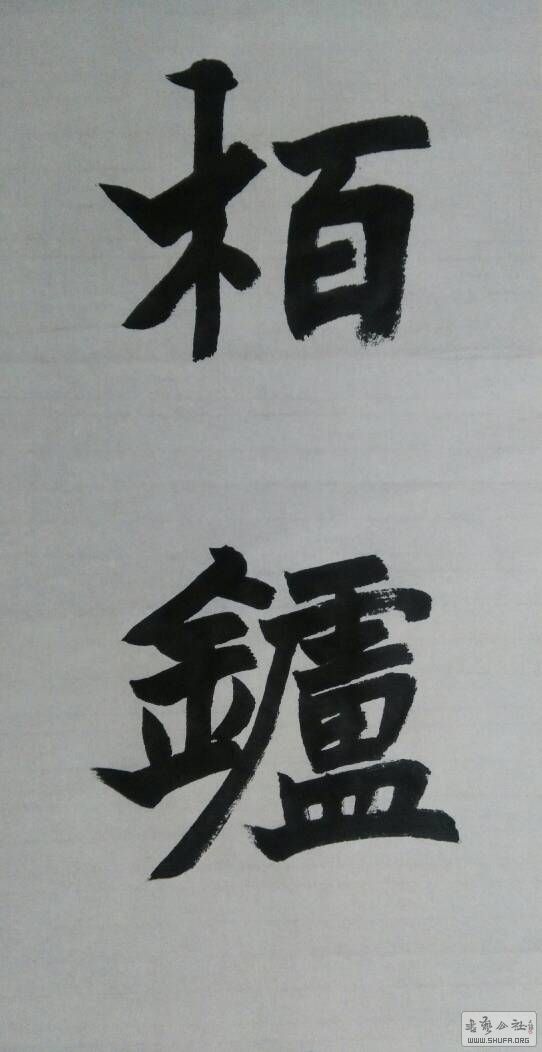 栢鑪
書藝公社
WWW.SHUFA.ORG